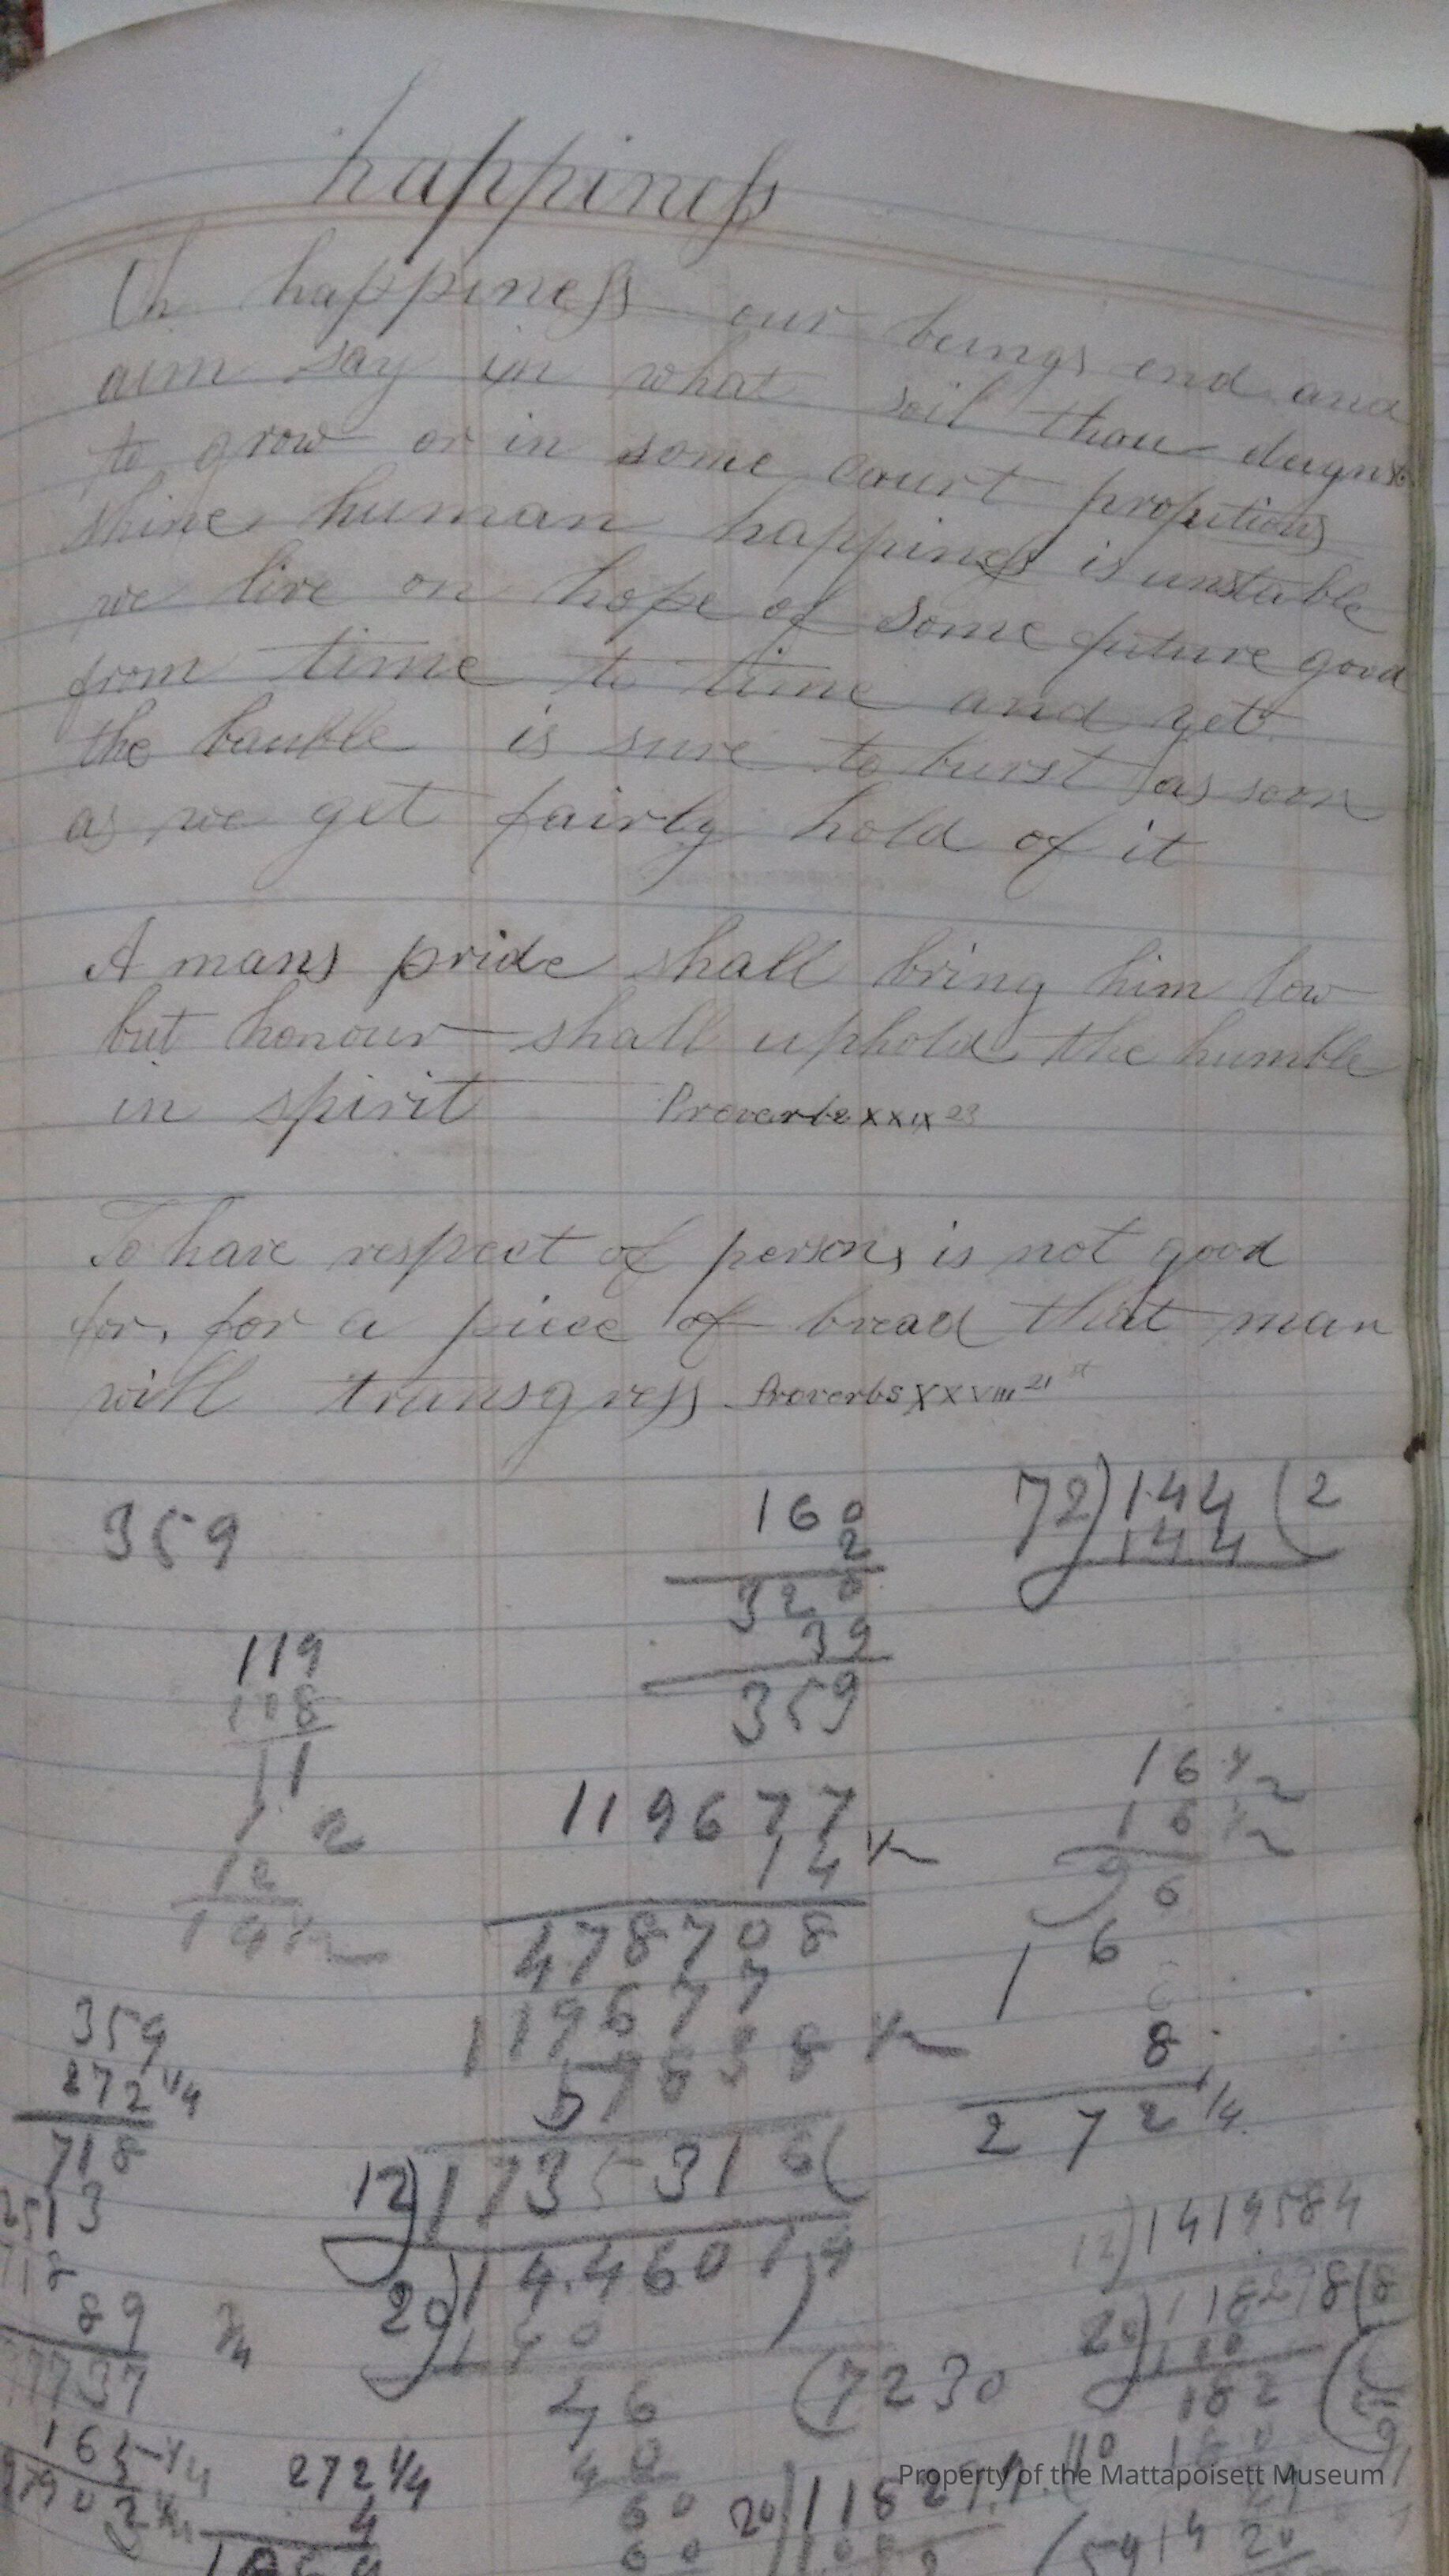 happiness
Oh happiness our beings end and
aim say in what soil thou deignst
to grow or in some court propitious
shine human happiness is unstable
we live on hope of some future good
from time to time and yet
the bauble is sure to burst as soon
as we get fairly hold of it
A mans pride shall bring him low
but honour shall uphold the humble
in spirit Proverbs xxix 23
To have respect of persons is not good
for, for a piece of bread that man
will transgress Proverbs XXVIII 21st
359
160
2
320
39
359
72)144(2
144
119
108
11
12
14 1/2
119677
14 1/2
478708
119677
1/2
12)1735316(
20)144607
140
46
40
60
60
(7230
16 1/2
16 1/2
96
16
8
272 1/4
359
272 1/4
718
2513
718
89 3/4
97737
272 1/4
4
12)1419584
20)118298(8
100
182
Property of the Mattapoisett Museum